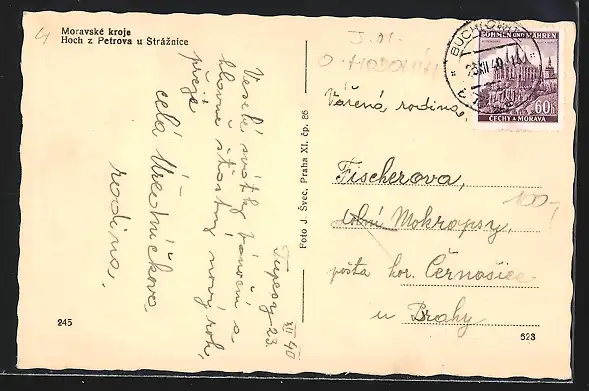 Moravské kroje
Hoch z Petrova u Strážnice
Veselé svátky vánoční a
hlavně šťastný nový rok
přeje
celá Úředníčkova
rodina.
Tupesy 23.
XII 40
245
Foto J. Švec, Praha XI. čp. 86
BÖHMEN UND MÄHREN
60h
ČECHY A MORAVA
BUCHLOV
23.XII.40
Vážená rodina,
Fischerova,
dolní Mokropsy,
100,-
pošta hor. Černošice
u Prahy
623